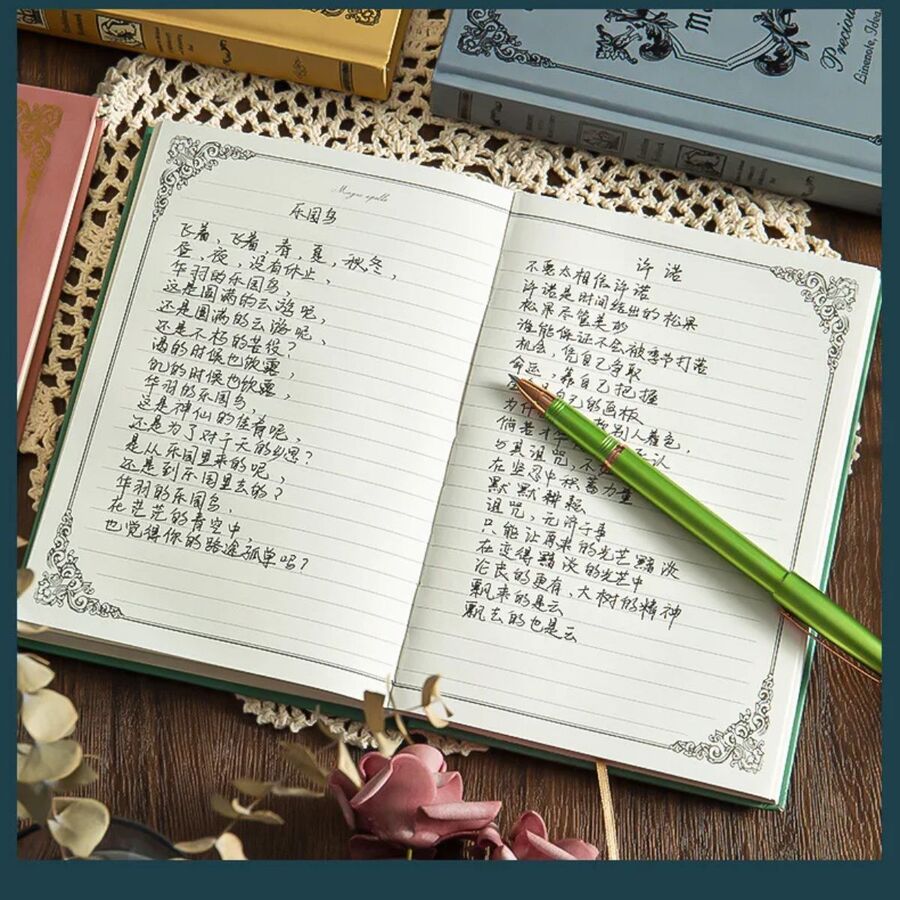 Precious
Linenote, Idea
乐园鸟
飞着，飞着，春，夏，秋冬，
昼，夜，没有休止，
华羽的乐园鸟，
这是圆满的云游呢，
还是圆满的云游呢，
还是不朽的苦役？
渴的时候也饮露，
饥的时候也饮露，
华羽的乐园鸟，
这是神仙的佳肴呢，
还是为了对于天的乡思？
是从乐园里来的呢，
还是到乐园里去的？
华羽的乐园鸟，
在茫茫的青空中
也觉得你的路途孤单吗？
许诺
不要太相信许诺
许诺是时间结出的松果
松果尽管美妙
谁能保证不会被季节打落
机会，凭自己争取
命运，靠自己把握
自己的画板
为什 别人着色
倘若才 承认
与其诅咒，不
在坚忍中积蓄力量
默默耕耘
诅咒，无济于事
只能让原来的光芒黯淡
在变得黯淡的光芒中
沦丧的更有，大树的精神
飘来的是云
飘去的也是云